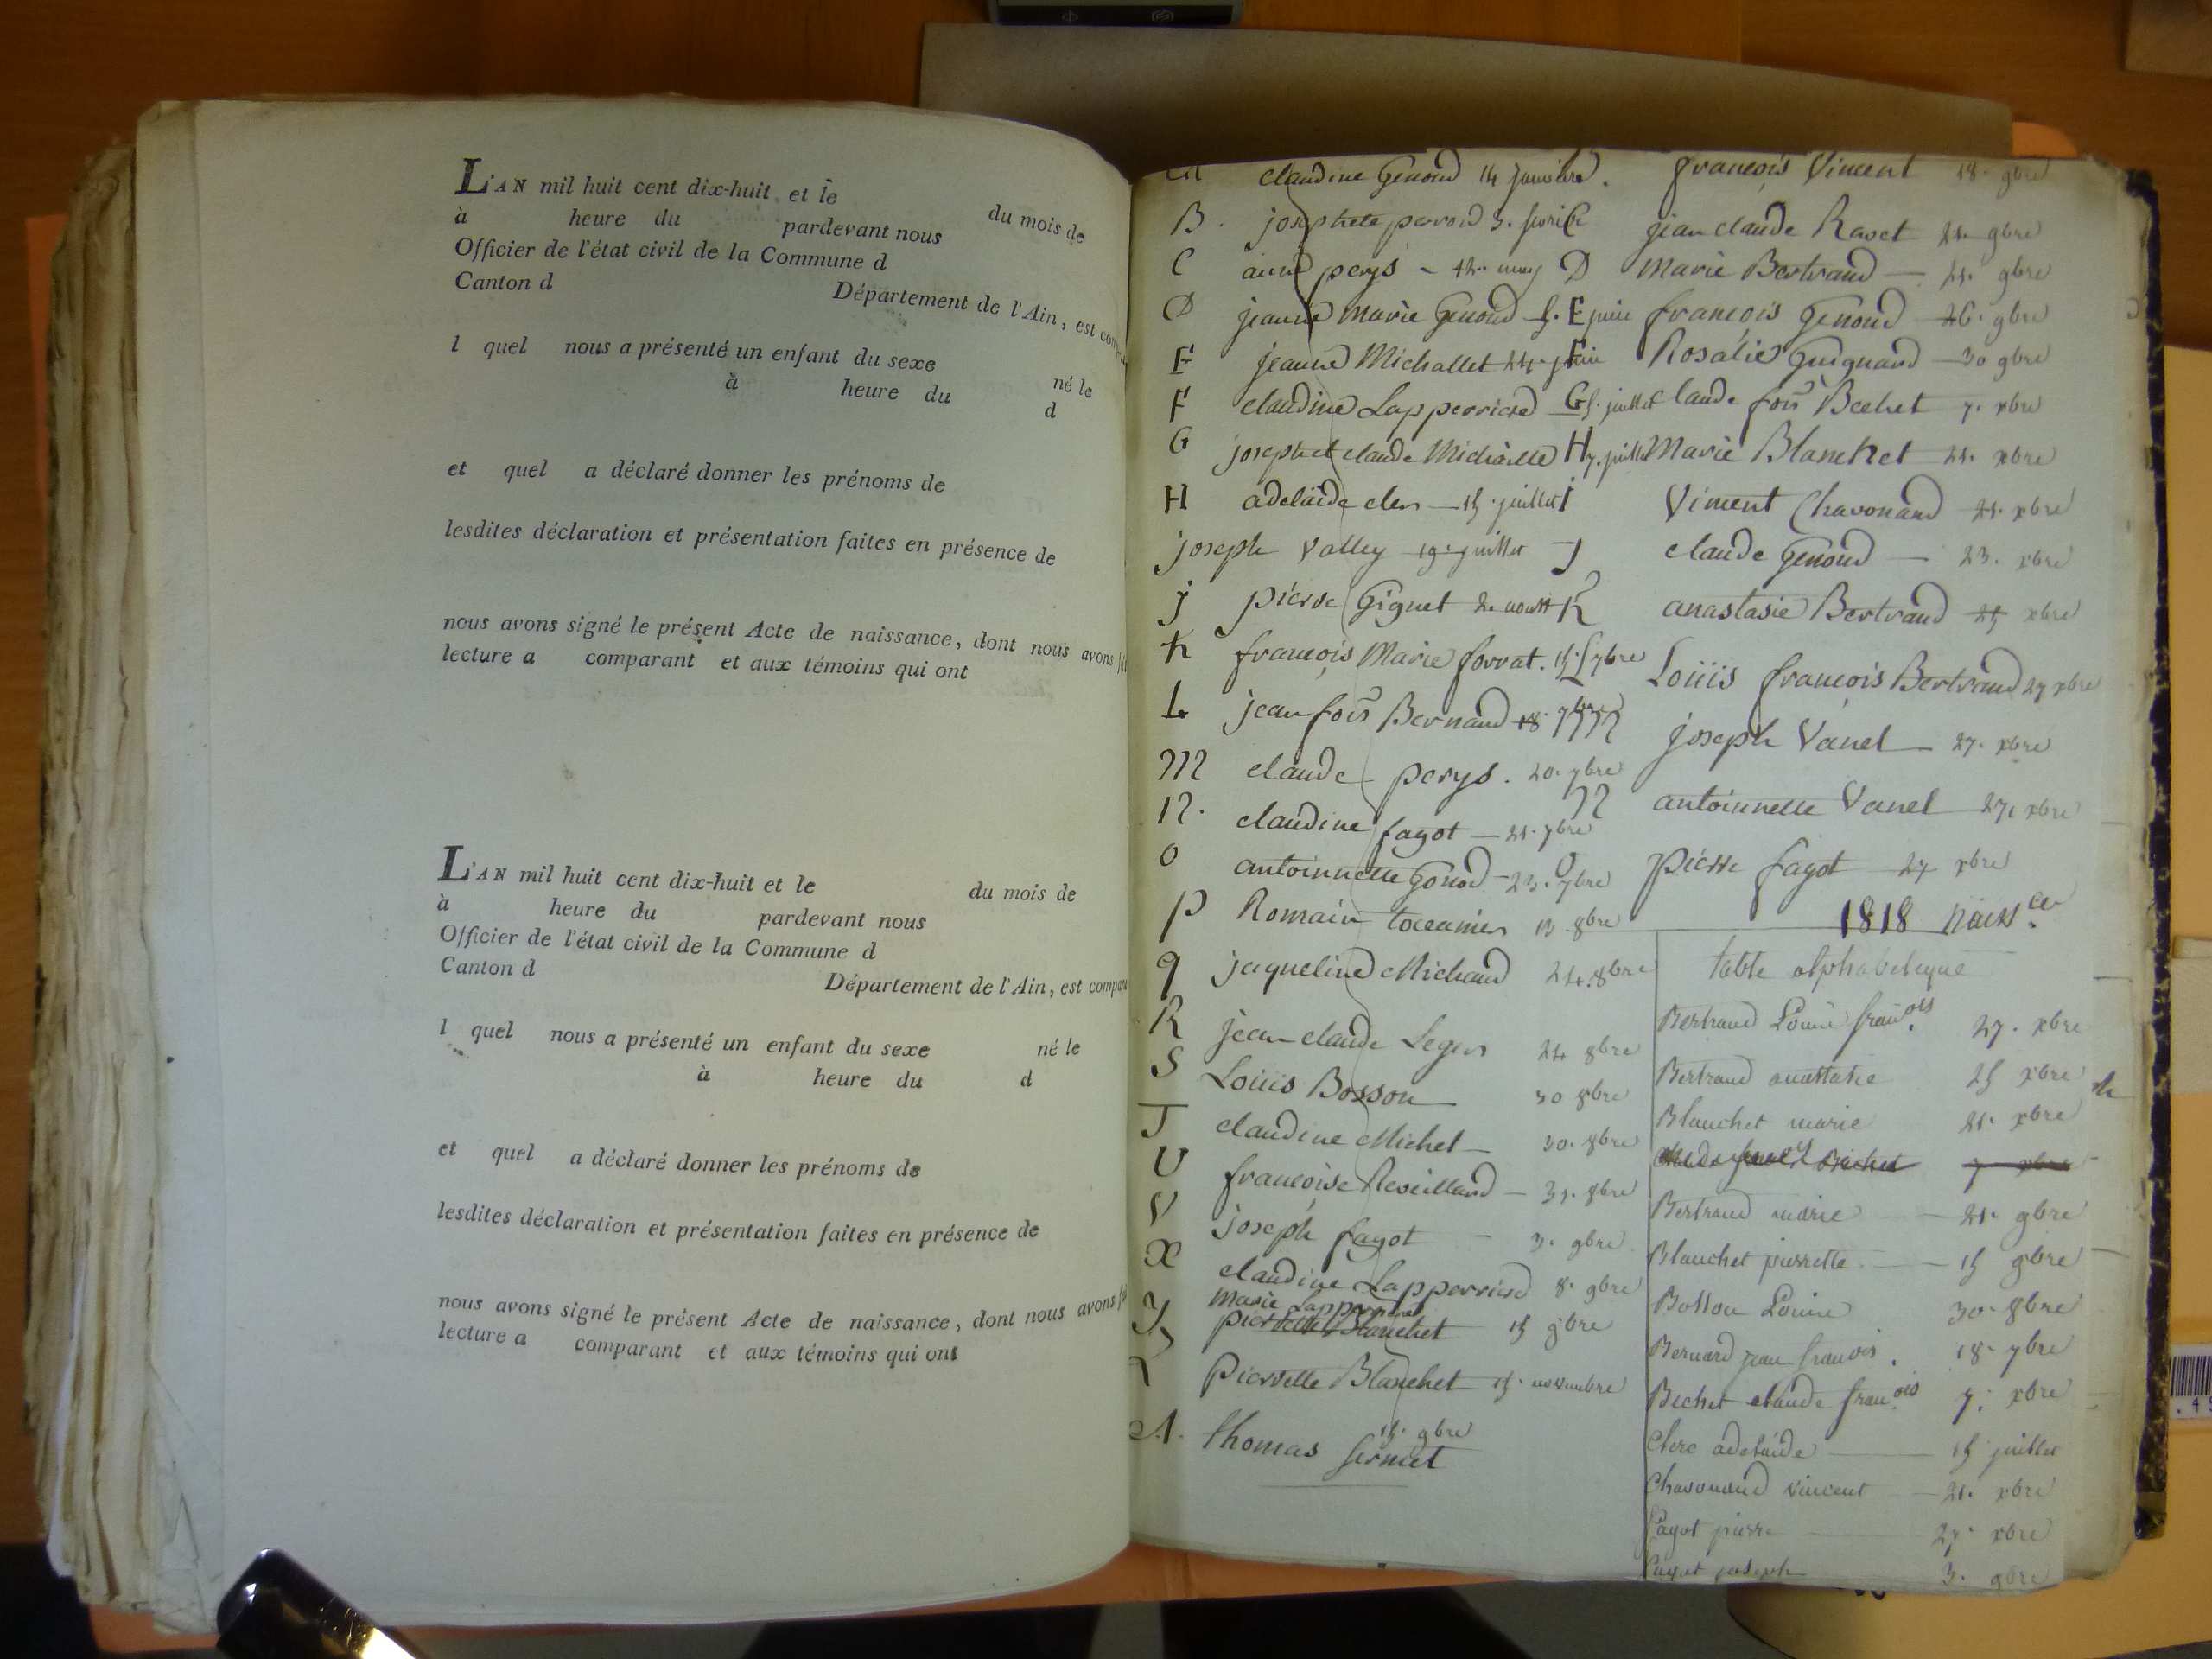 L'AN mil huit cent dix-huit et le du mois de
à heure du pardevant nous
Officier de l'état civil de la Commune d
Canton d Département de l'Ain, est
l quel nous a présenté un enfant du sexe né le
à heure du d
et quel a déclaré donner les prénoms de
lesdites déclaration et présentation faites en présence de
nous avons signé le présent Acte de naissance, dont nous avons
lecture a comparant et aux témoins qui ont
L'AN mil huit cent dix-huit et le du mois de
à heure du pardevant nous
Officier de l'état civil de la Commune d
Canton d Département de l'Ain, est
l quel nous a présenté un enfant du sexe né le
à heure du d
et quel a déclaré donner les prénoms de
lesdites déclaration et présentation faites en présence de
nous avons signé le présent Acte de naissance, dont nous avons
lecture a comparant et aux témoins qui ont
claudine Genoud 14
B. josephete
C perys
D jeanne Marie Genoud
E jeanne Michallet
F claudine Lapperriere
G joseph et claude
H adelaide 15. juillet
joseph Valley 19. juillet
j pierre Gignet
K françois Marie forrat. 15. 7bre
L jean fois Bernand 18. 7bre
M claude perys. 20. 7bre
N. claudine fagot 21. 7bre
O antoinnette 23. 7bre
P Romain 8bre
q jaqueline Michaud 24. 8bre
R jean claude Legers 24 8bre
S Louis Bosson 30 8bre
T claudine Michel 30. 8bre
U françoise Reveillard 31. 8bre
V joseph fagot 3. 9bre
X claudine Lapperriere 8. 9bre
marie
Y pierrette Blanchet 15 9bre
Pierrette Blanchet 15. novembre
A. thomas 15. 9bre
françois Viment 18. 9bre
C jean claude Ravet 21. 9bre
D Marie Bertrand 21. 9bre
E françois Genoud 26. 9bre
F Rosalie Guignard 30 9bre
G claude fois Bechet 7. xbre
H Marie Blanchet 21. xbre
i Viment Chavonand 21. xbre
J claude Genoud 23. xbre
K anastasie Bertrand 25 xbre
L Louis françois Bertrand 27 xbre
M joseph Vanel 27. xbre
N antoinnette Vanel 27. xbre
O pierre fagot 27 xbre
1818 naiss.ce
table alphabetique
Bertrand Louis franois. 27. xbre
Bertrand anastasie 25 xbre
Blanchet marie 21. xbre
Bertrand marie 21. 9bre
Blanchet pierrette 15 9bre
Bosson Louise 30. 8bre
Bernard jean franois. 18. 7bre
Bechet claude franois 7. xbre
Clerc adelaide 15 juillet
Chavonand vincent 21. xbre
fagot pierre 27. xbre
fagot joseph 3. 9bre